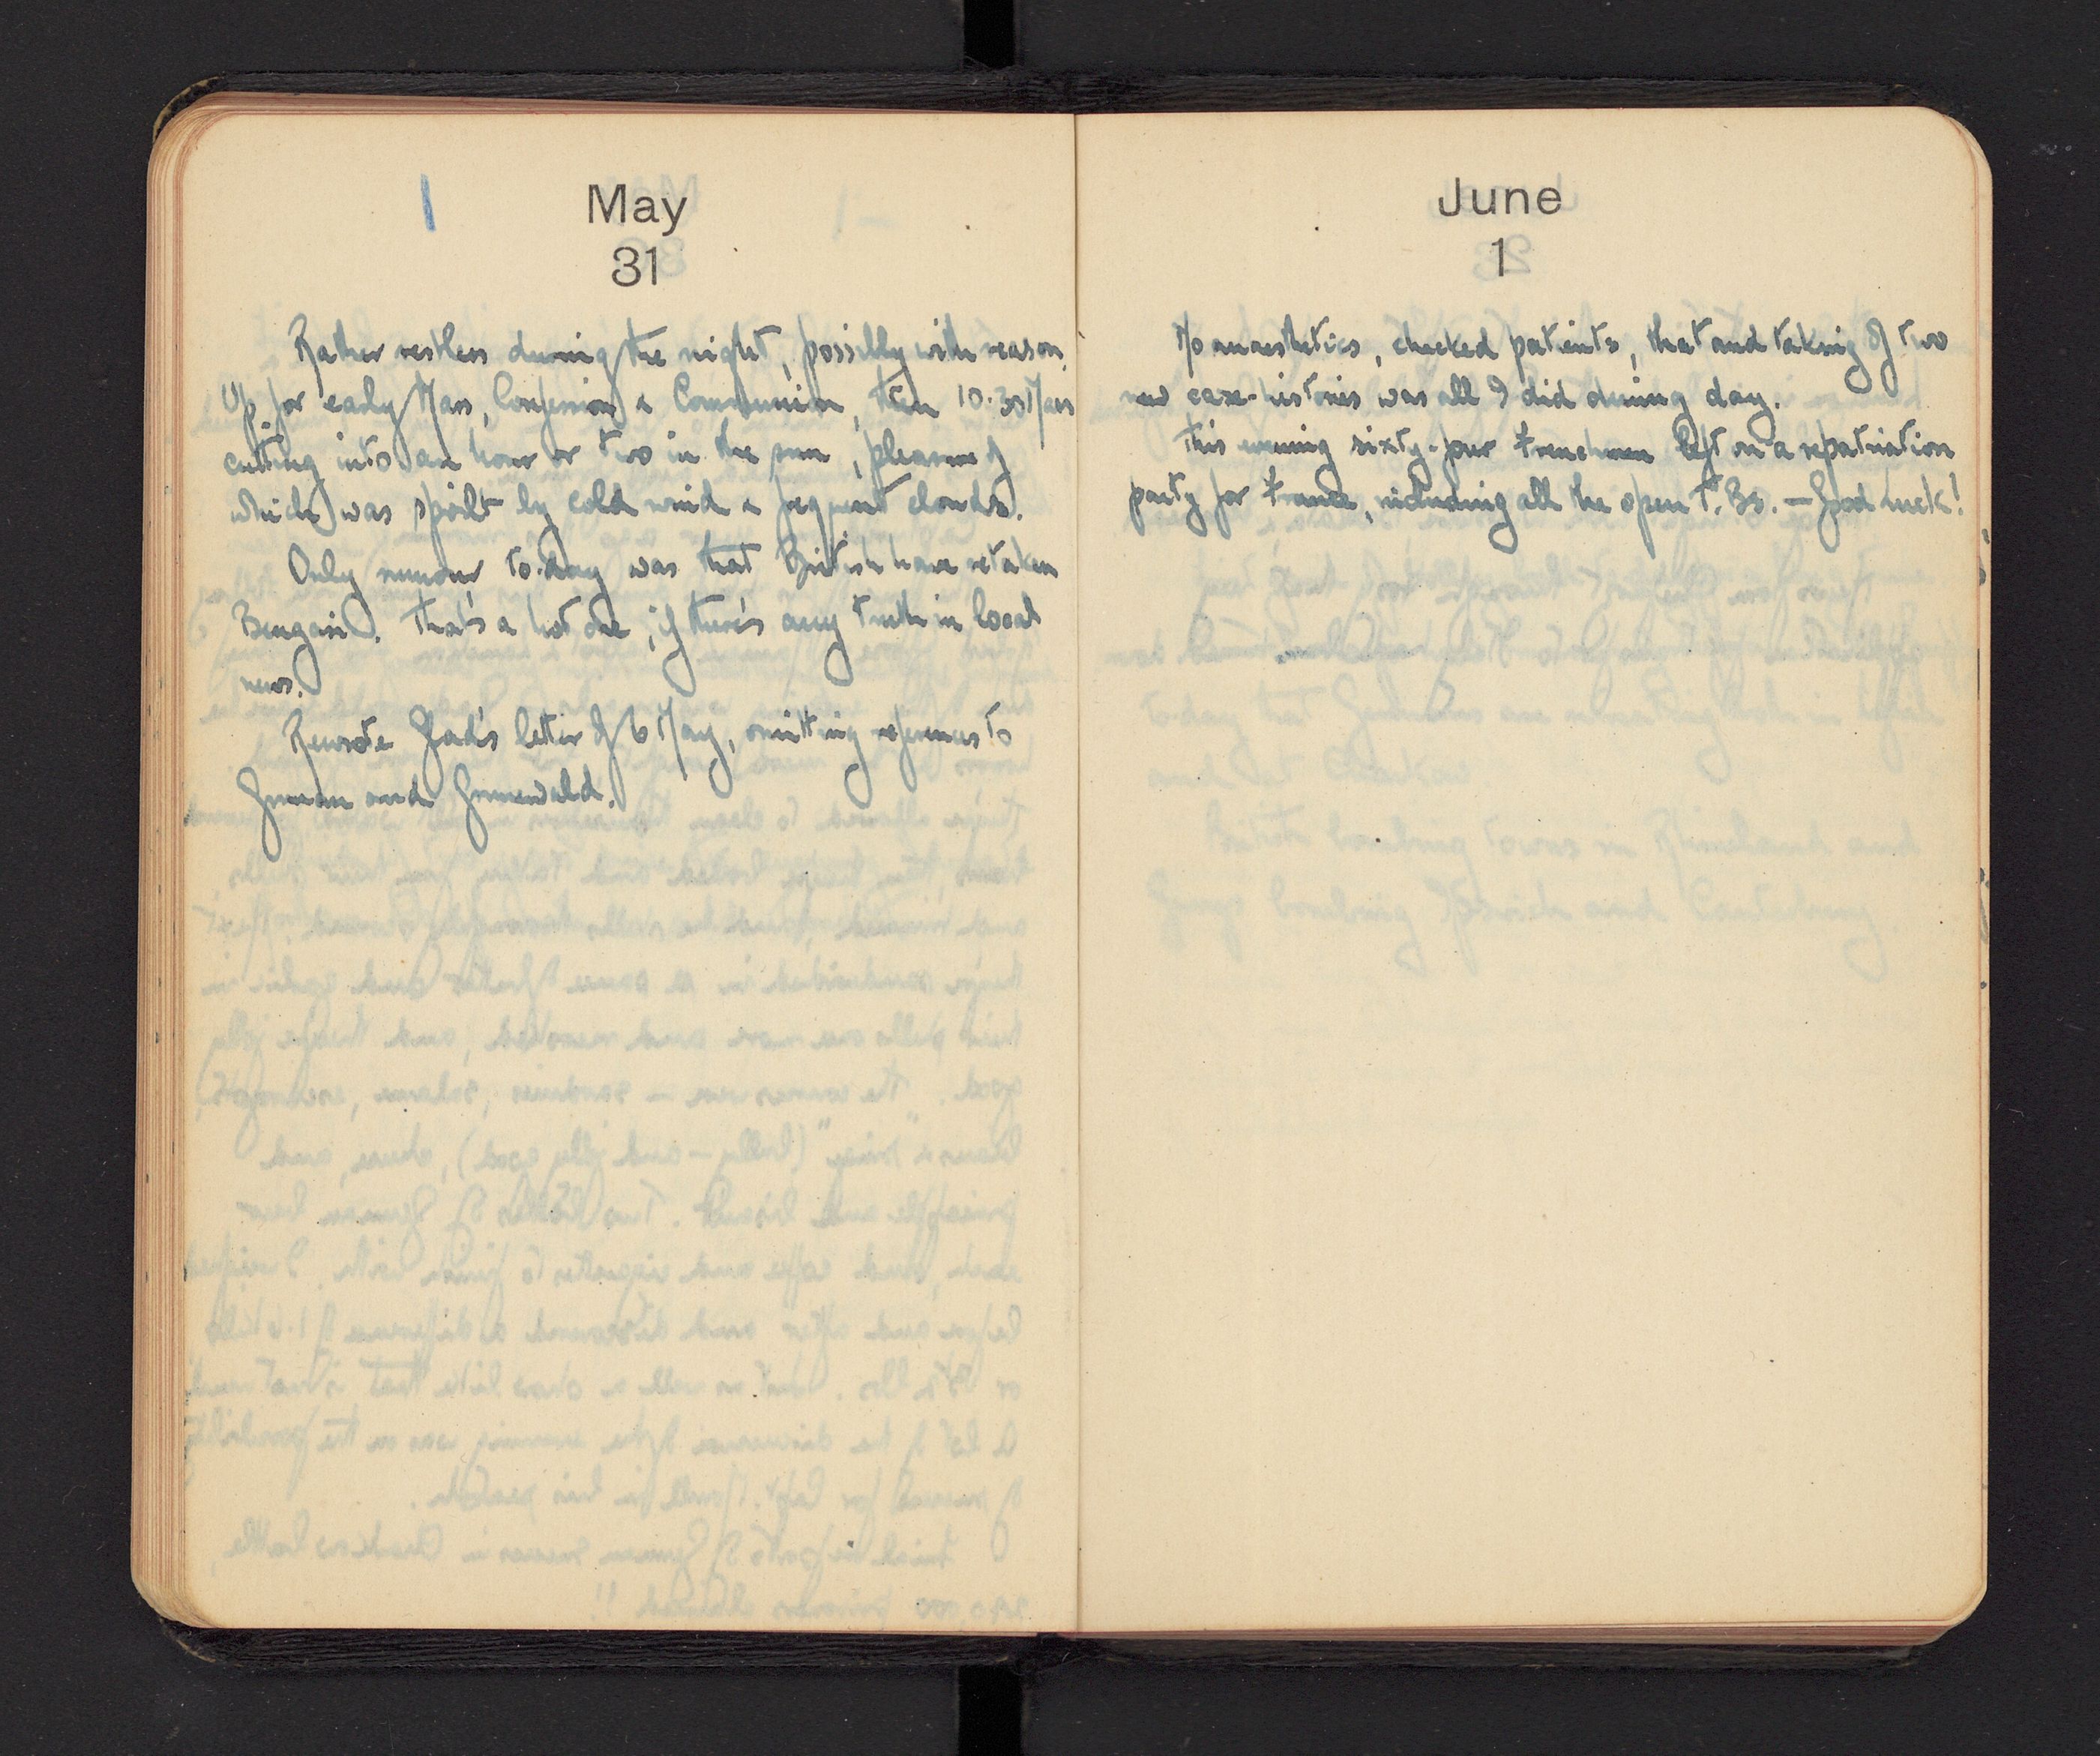 May
31
Rather restless during the night, possibly with reason.
Up for early Mass, Confession & Communion, then 10.30 Mass
cutting into an hour or two in the sun, pleasure of
which was spoilt by cold wind & frequent clouds.
Only rumour to-day was that British have retaken
Bengasi. That's a hot one, if there's any truth in local
news.
Rewrote Glad's letter of 6 May, omitting references to
and Grunewald.
June
1
No anaesthetics, checked patients, that and taking of two
new case-histories was all I did during day.
This evening sixty-four Frenchmen left on a repatriation
party for France, including all the open T.Bs. — Good luck!